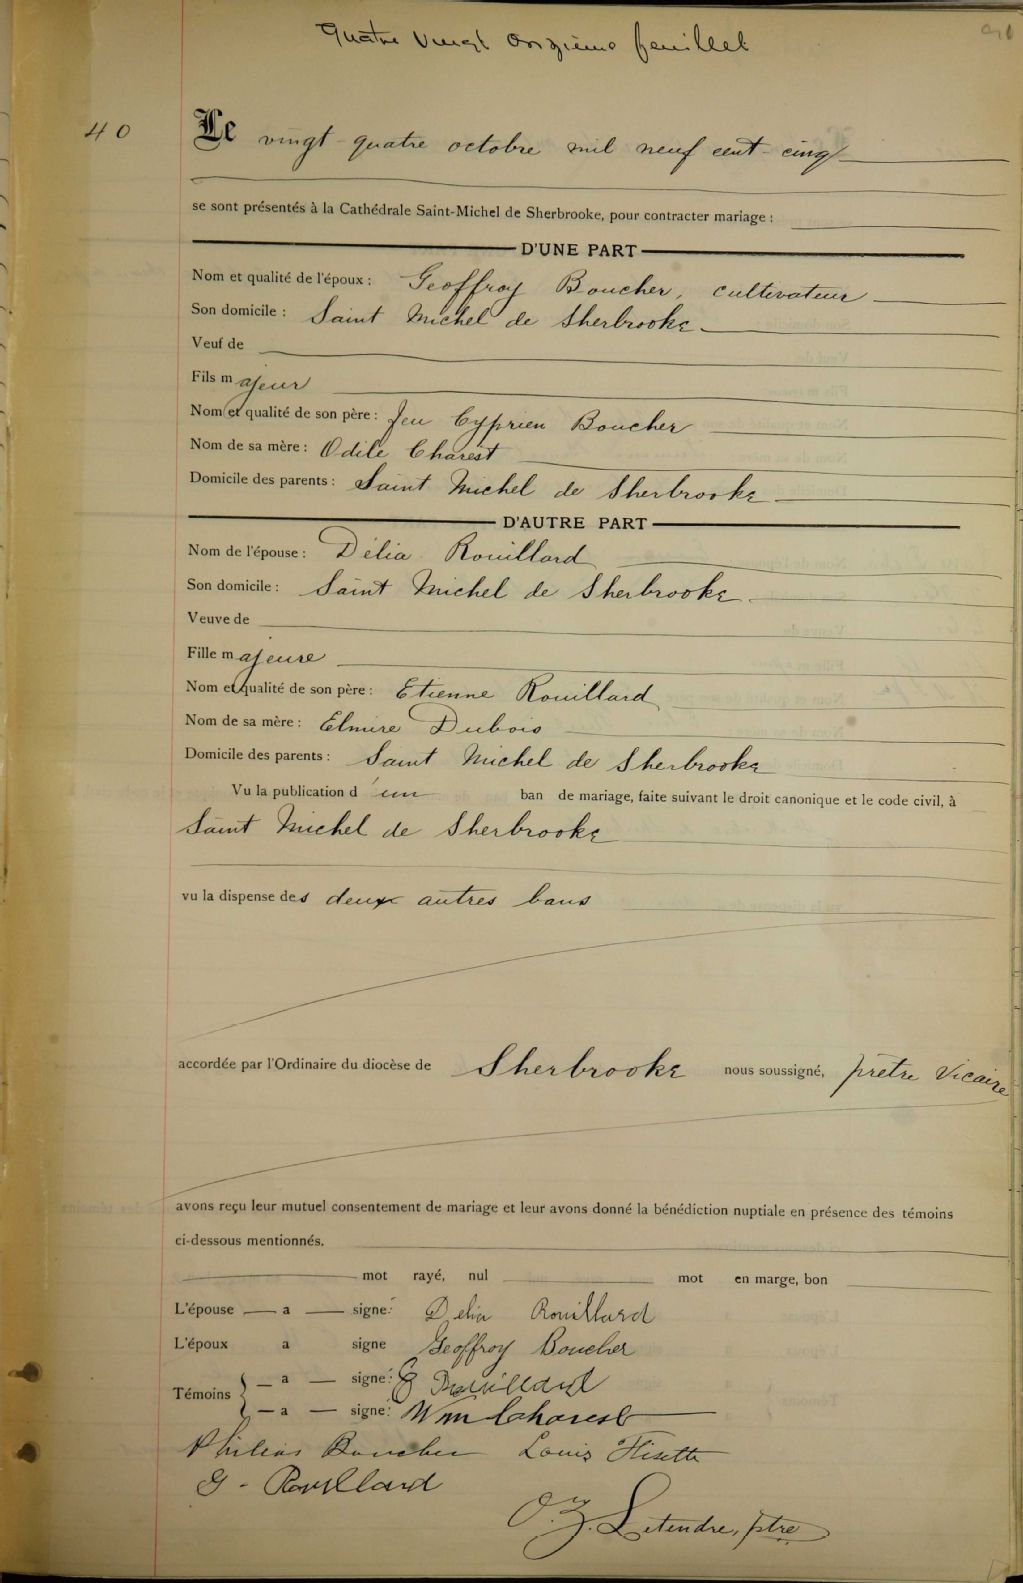 Quatre Vingt Onzième feuillet
91
40
Le vingt-quatre octobre mil neuf cent-cinq
se sont présentés à la Cathédrale Saint-Michel de Sherbrooke, pour contracter mariage :
D'UNE PART
Nom et qualité de l'époux : Geoffroy Boucher, cultivateur
Son domicile : Saint Michel de Sherbrooke
Veuf de
Fils majeur
Nom et qualité de son père : feu Cyprien Boucher
Nom de sa mère : Odile Charest
Domicile des parents : Saint Michel de Sherbrooke
D'AUTRE PART
Nom de l'épouse : Délia Rouillard
Son domicile : Saint Michel de Sherbrooke
Veuve de
Fille majeure
Nom et qualité de son père : Etienne Rouillard
Nom de sa mère : Elmire Dubois
Domicile des parents : Saint Michel de Sherbrooke
Vu la publication d'un ban de mariage, faite suivant le droit canonique et le code civil, à
Saint Michel de Sherbrooke
vu la dispense des deux autres bans
accordée par l'Ordinaire du diocèse de Sherbrooke nous soussigné, prêtre Vicaire
avons reçu leur mutuel consentement de mariage et leur avons donné la bénédiction nuptiale en présence des témoins
ci-dessous mentionnés.
mot rayé, nul mot en marge, bon
L'épouse — a — signé: Delia Rouillard
L'époux a signé Geoffroy Boucher
Témoins { — a — signé: E Rouillard
— a — signé: Wm Charest
Philias Boucher Louis Flisette
G - Rouillard
O. Z. Letendre, ptre